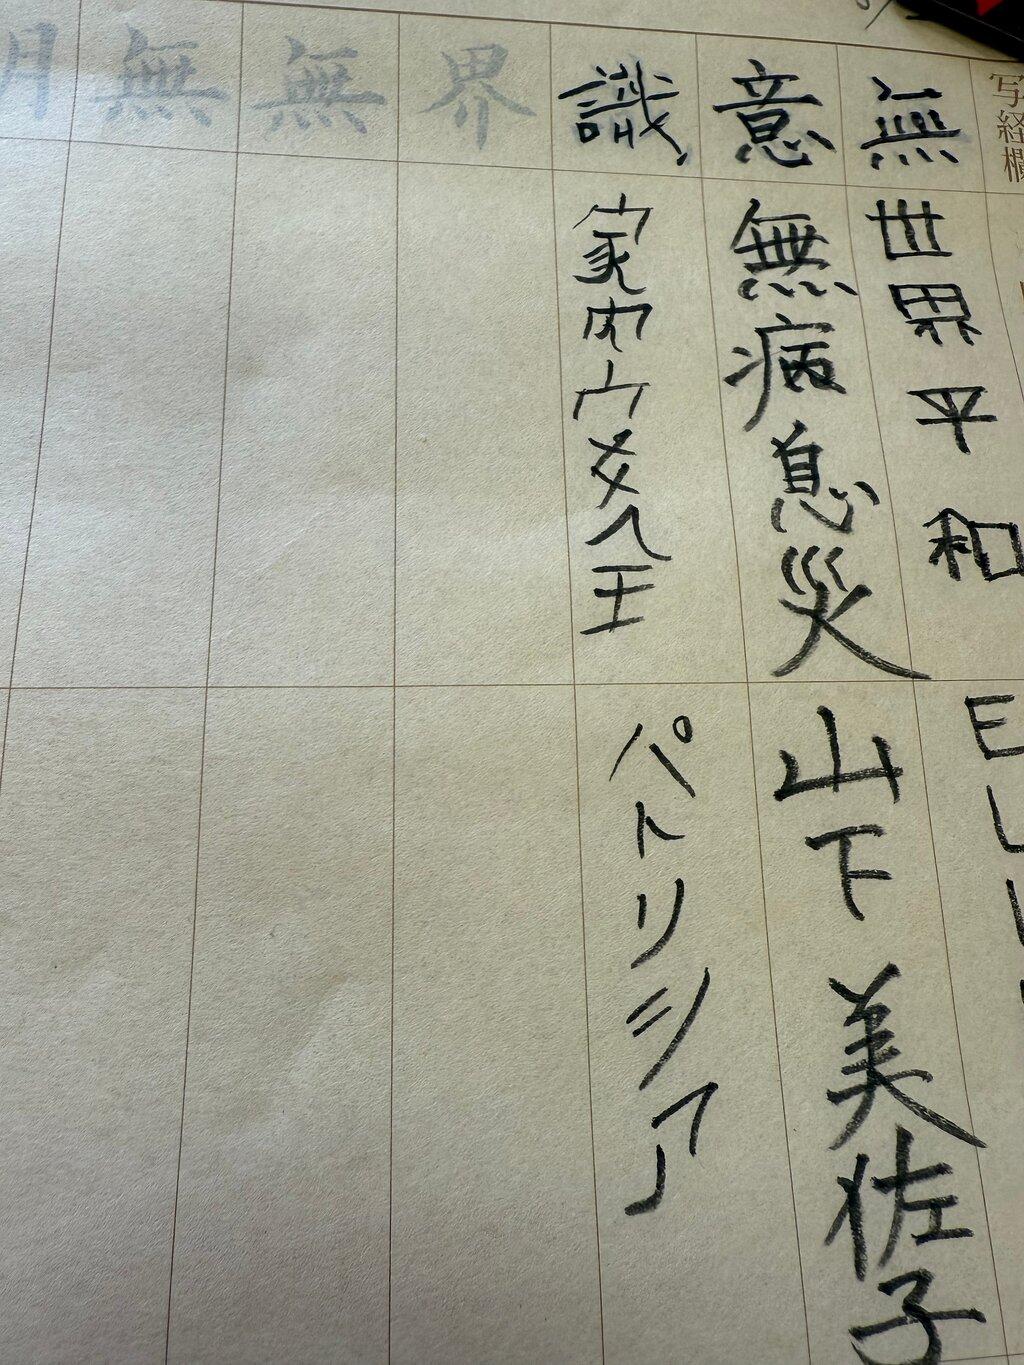 写経欄
無
世界平和
意
無病息災
山下美佐子
識
家内安全
パトリシア
界
無
無
明